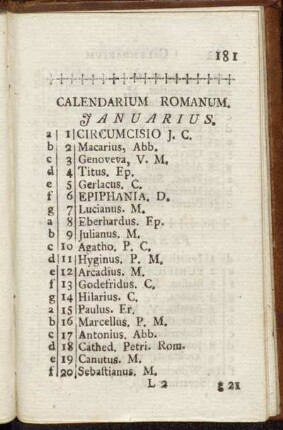 181
CALENDARIUM ROMANUM.
JANUARIUS.
a 1 CIRCUMCISIO J. C.
b 2 Macarius, Abb.
c 3 Genoveva, V. M.
d 4 Titus. Ep.
e 5 Gerlacus. C.
f 6 EPIPHANIA. D.
g 7 Lucianus. M.
a 8 Eberhardus. Ep.
b 9 Julianus. M.
c 10 Agatho. P. C.
d 11 Hyginus. P. M.
e 12 Arcadius. M.
f 13 Godefridus. C.
g 14 Hilarius. C.
a 15 Paulus. Er.
b 16 Marcellus. P. M.
c 17 Antonius. Abb.
d 18 Cathed. Petri. Rom.
e 19 Canutus. M.
f 20 Sebastianus. M.
L 2 g 21